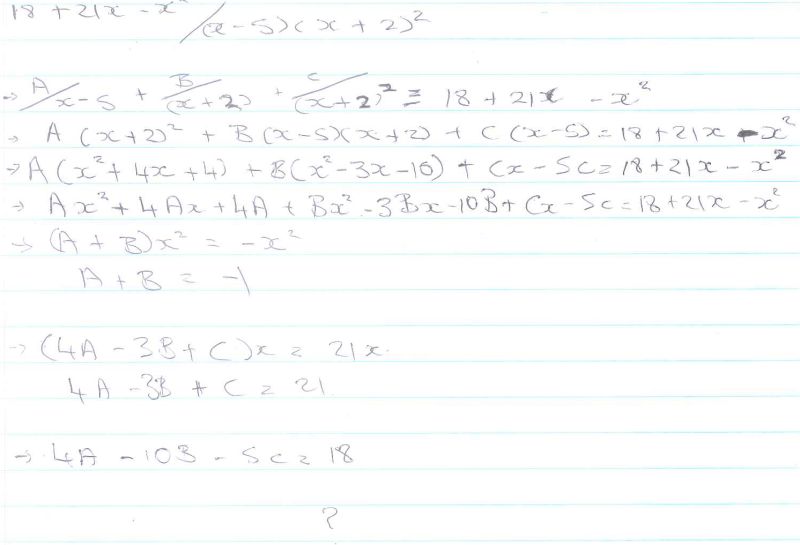 18 + 21x - x² / (x-5)(x+2)²
→ A/x-5 + B/(x+2) + C/(x+2)² ≡ 18 + 21x - x²
→ A(x+2)² + B(x-5)(x+2) + C(x-5) = 18 + 21x - x²
→ A(x² + 4x + 4) + B(x² - 3x - 10) + Cx - 5C = 18 + 21x - x²
→ Ax² + 4Ax + 4A + Bx² - 3Bx - 10B + Cx - 5C = 18 + 21x - x²
→ (A + B)x² = -x²
A + B = -1
→ (4A - 3B + C)x = 21x
4A - 3B + C = 21
→ 4A - 10B - 5C = 18
?